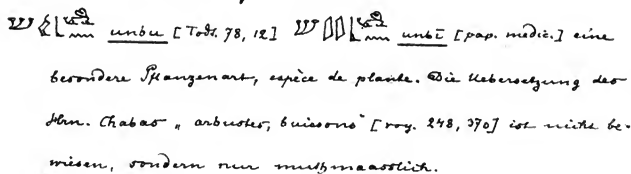 unbu [Todt. 78, 12] unbī [pap. medic.] eine
besondere Pflanzenart, espèce de plante. Die Uebersetzung des
Hrn. Chabas „ arbustes, buissons" [voy. 248, 370] ist nicht be-
wiesen, sondern nur muthmaasslich.